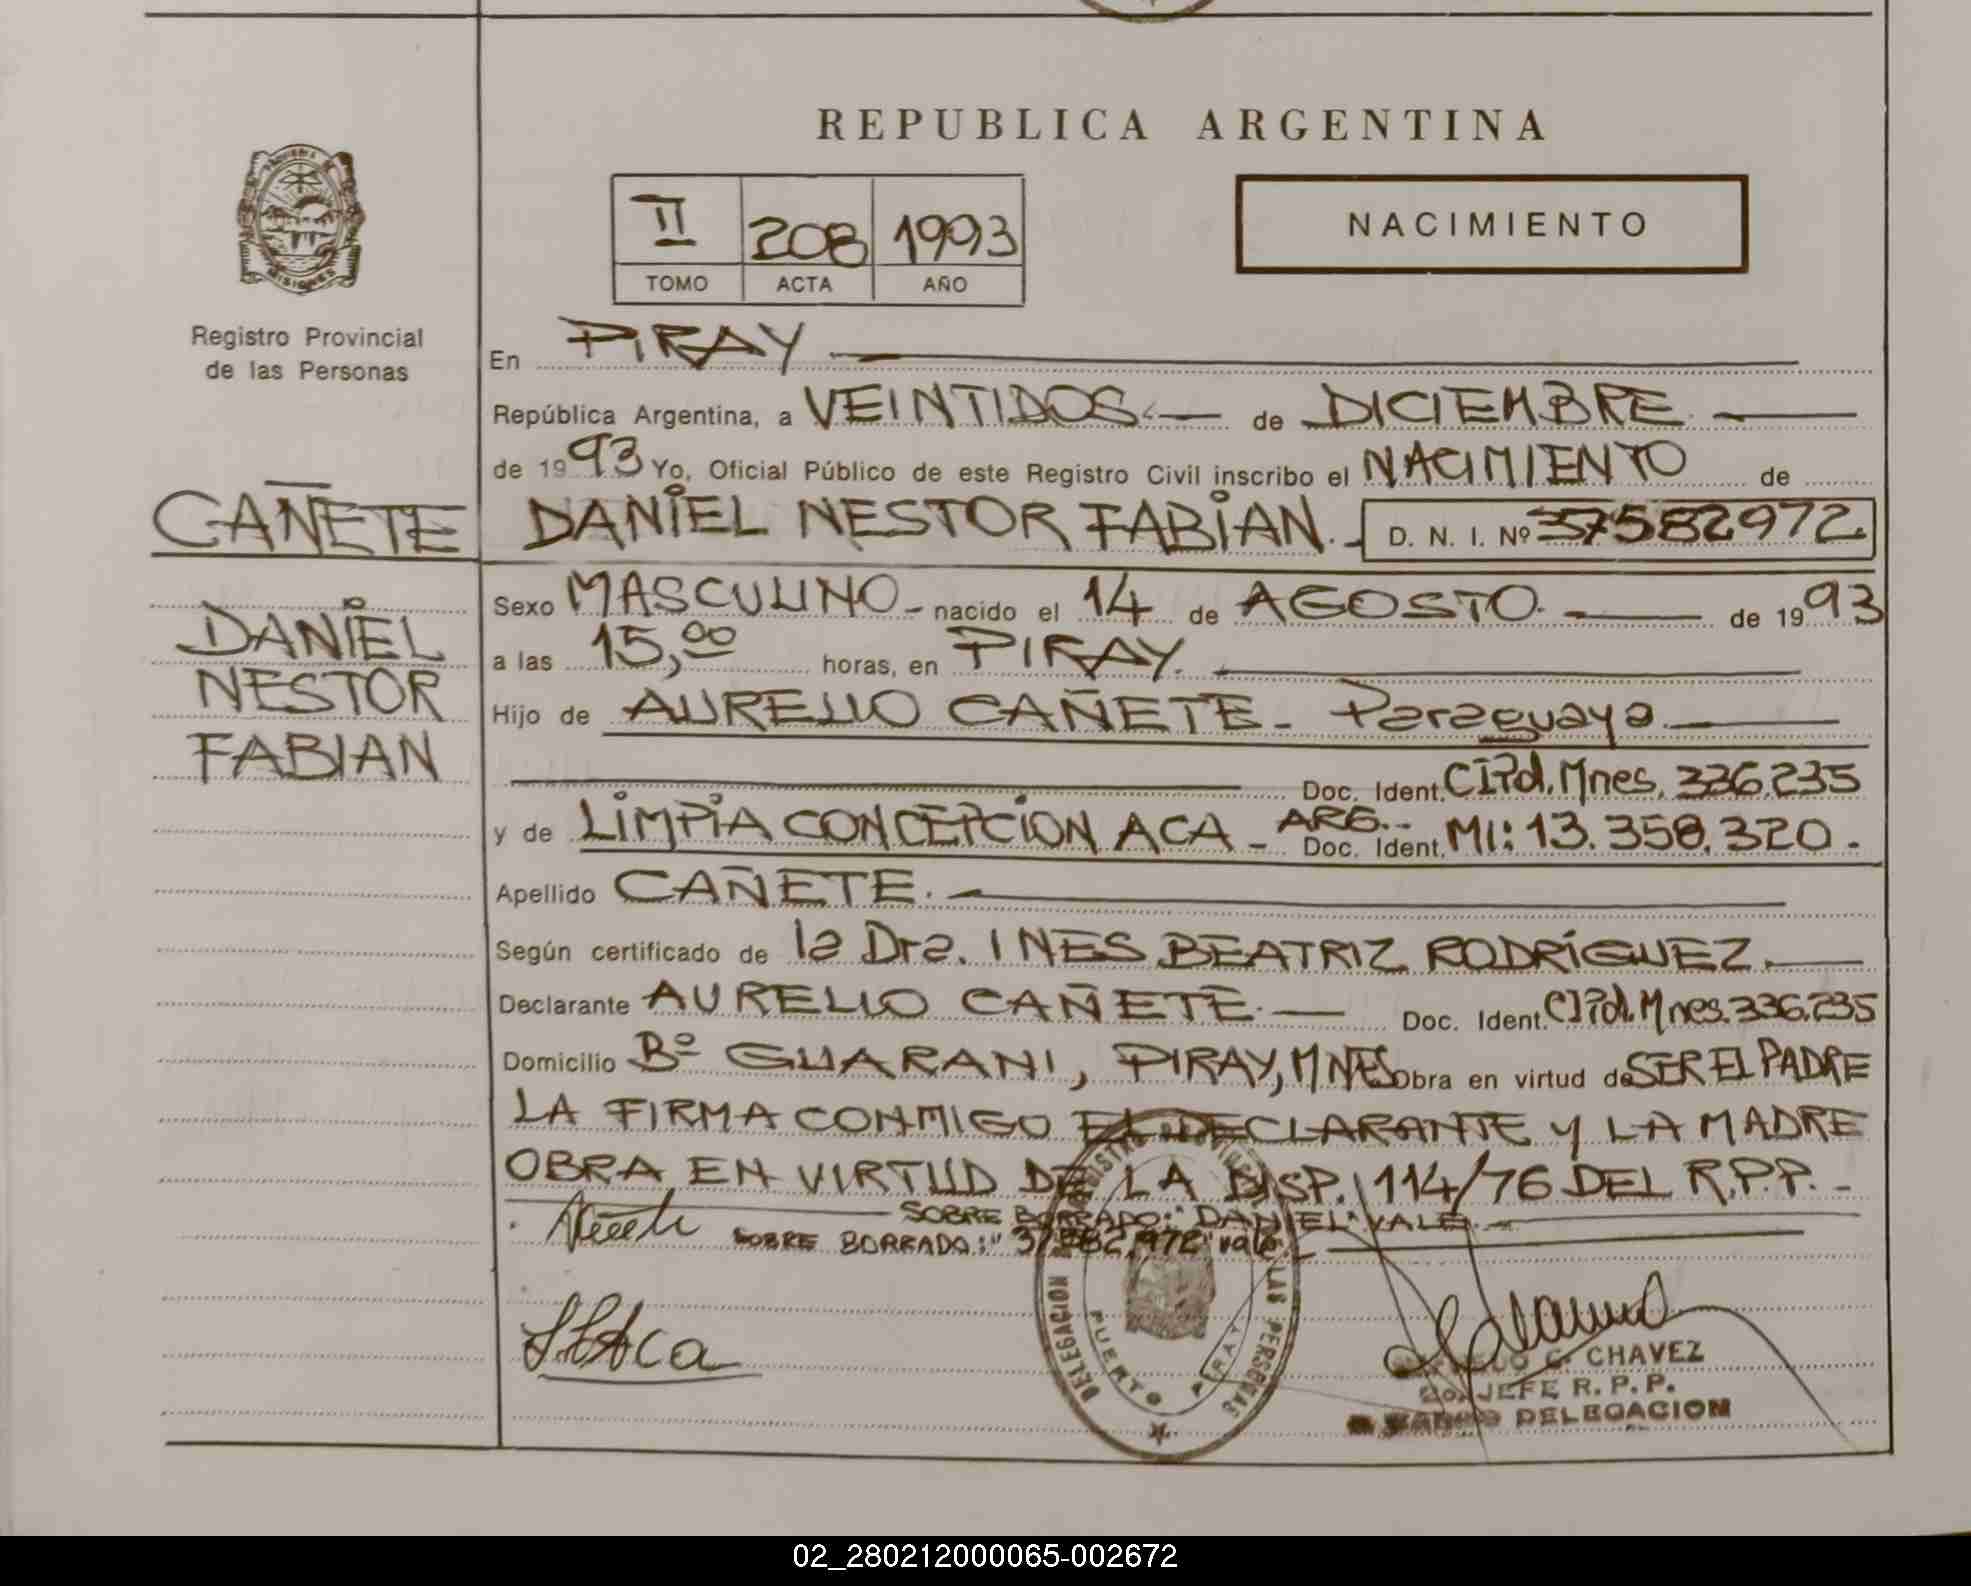 REPUBLICA ARGENTINA
II 208 1993
TOMO ACTA AÑO
NACIMIENTO
MISIONES
Registro Provincial
de las Personas
CAÑETE
DANIEL
NESTOR
FABIAN
En PIRAY
República Argentina, a VEINTIDOS de DICIEMBRE
de 1993 Yo, Oficial Público de este Registro Civil inscribo el NACIMIENTO de
DANIEL NESTOR FABIAN. D. N. I. Nº 37582972.
Sexo MASCULINO nacido el 14 de AGOSTO de 1993
a las 15,00 horas, en PIRAY.
Hijo de AURELIO CAÑETE - Paraguaya
Doc. Ident. CIPol. Mnes. 336.235
y de LIMPIA CONCEPCION ACA - ARG. Doc. Ident. MI: 13.358.320.
Apellido CAÑETE.
Según certificado de la Dra. INES BEATRIZ RODRÍGUEZ.
Declarante AURELIO CAÑETE Doc. Ident. CIPol. Mnes. 336.235
Domicilio Bº GUARANI, PIRAY, MNES Obra en virtud de SER EL PADRE
LA FIRMA CONMIGO EL DECLARANTE Y LA MADRE
OBRA EN VIRTUD DE LA DISP. 114/76 DEL R.P.P.
SOBRE BORRADO: "DANIEL" VALE.
SOBRE BORRADO: "37582.972" vale.
Aca
DELEGACION LAS PERSONAS
PUERTO PIRAY
C. CHAVEZ
JEFE R. P. P.
DELEGACION
02_280212000065-002672